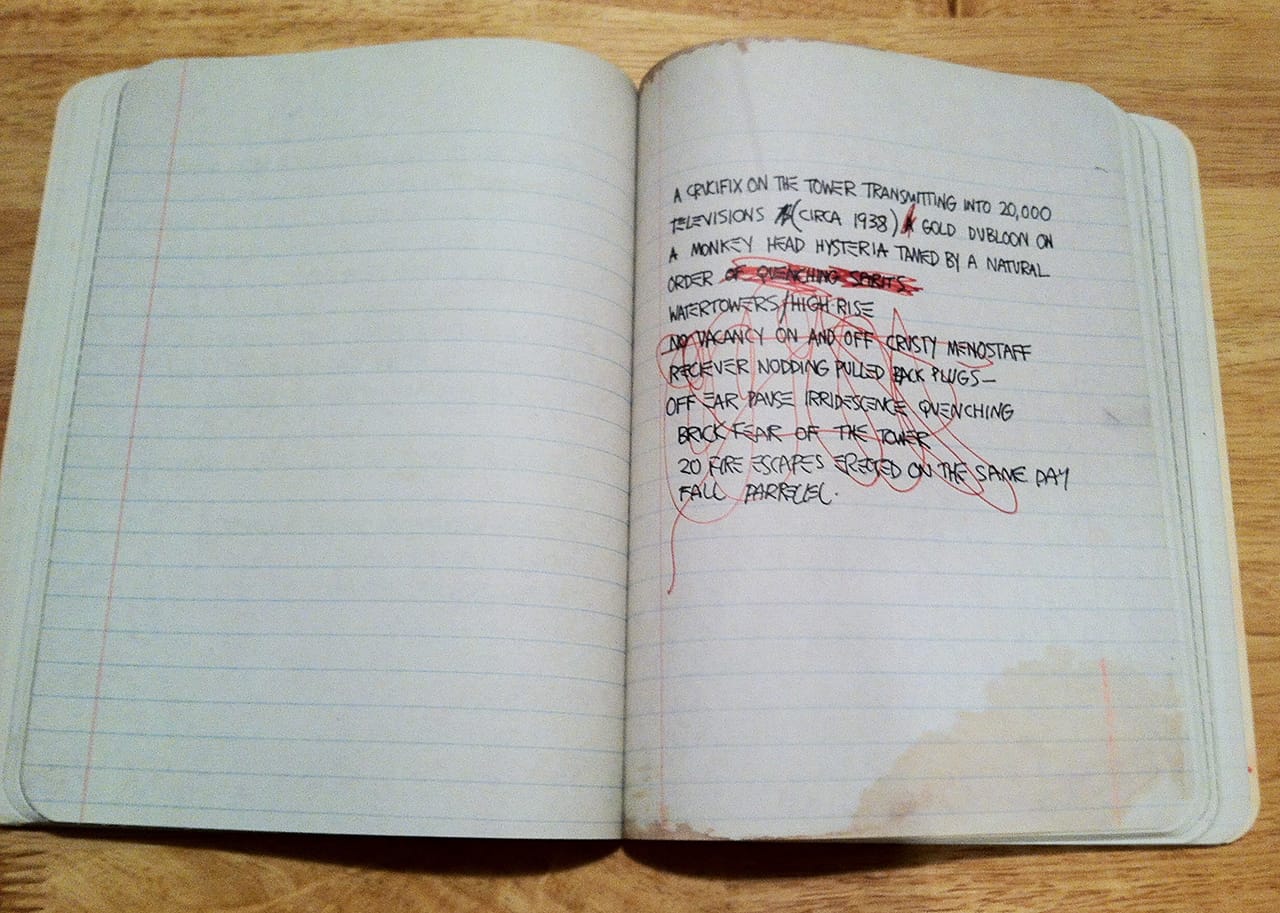 A CRUCIFIX ON THE TOWER TRANSMITTING INTO 20,000
TELEVISIONS (CIRCA 1938) GOLD DUBLOON ON
A MONKEY HEAD HYSTERIA TAMED BY A NATURAL
ORDER OF QUENCHING SPIRITS
WATERTOWERS/HIGH-RISE
NO VACANCY ON AND OFF CRUSTY MENOSTAFF
RECIEVER NODDING PULLED BACK PLUGS—
OFF EAR PAUSE IRRIDESCENCE QUENCHING
BRICK FEAR OF THE TOWER
20 FIRE ESCAPES ERECTED ON THE SAME DAY
FALL PARRELEL.